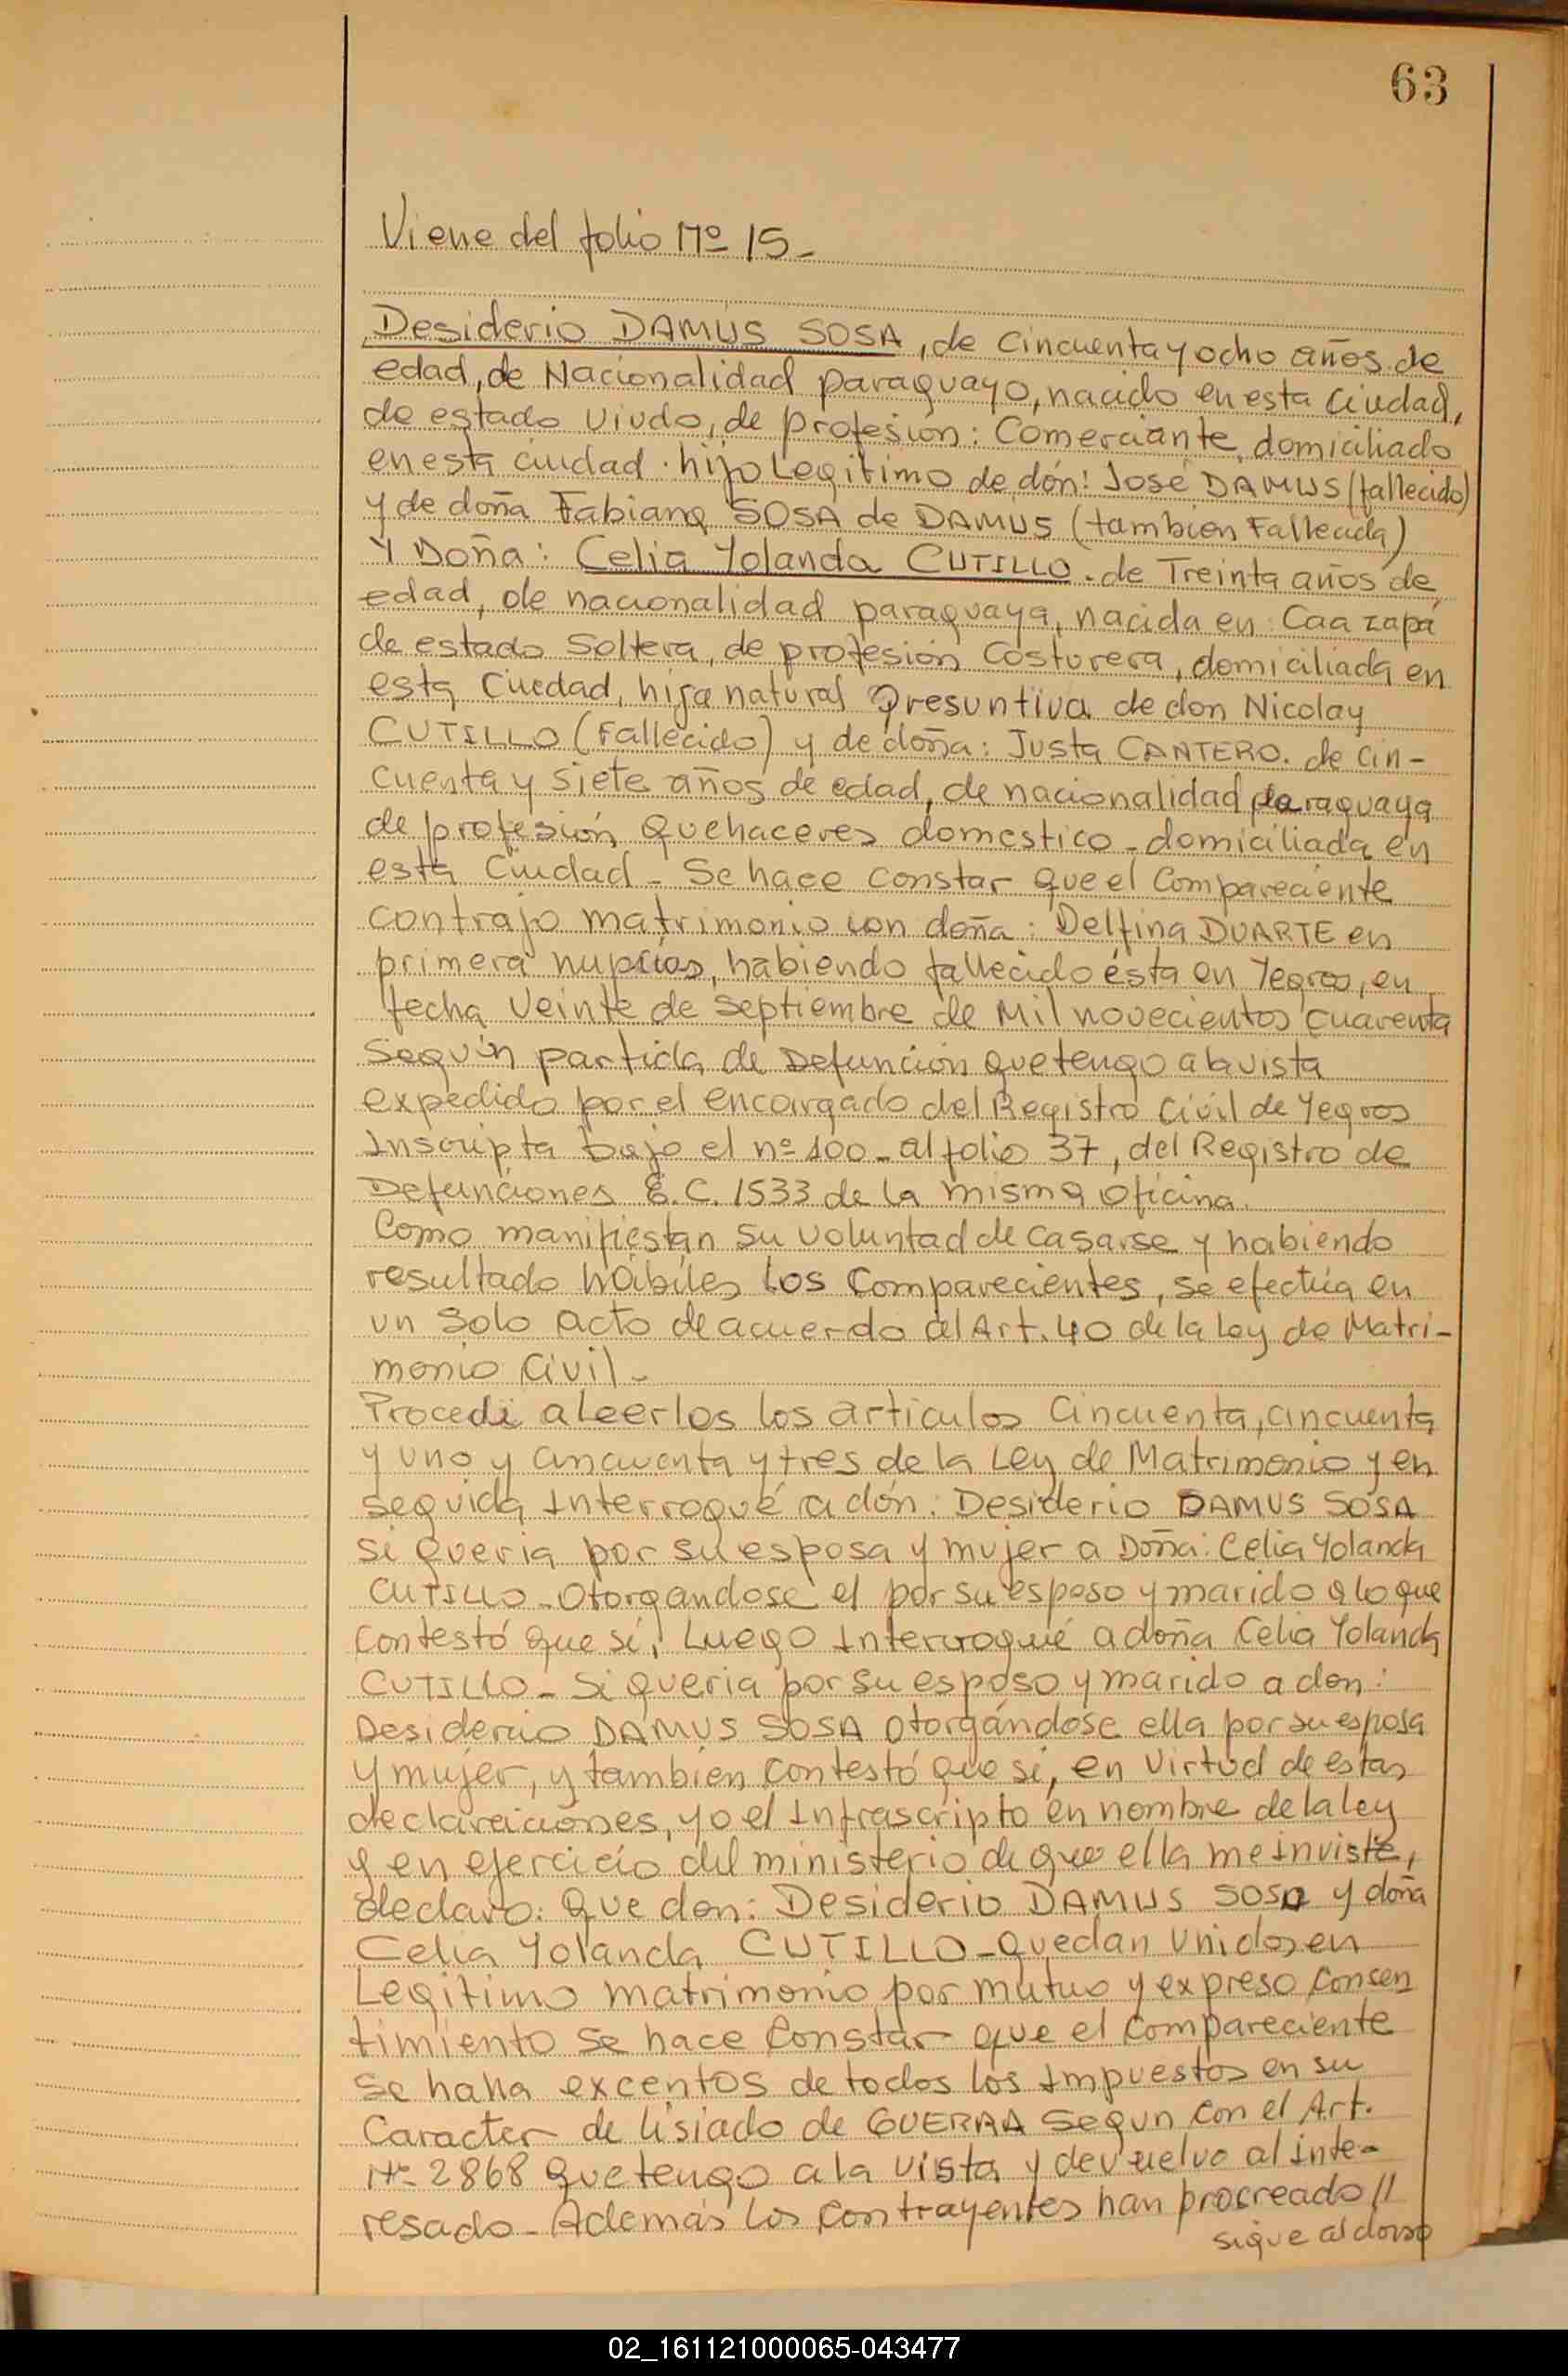 63
Viene del folio Nº 15-
Desiderio DAMUS SOSA, de Cincuenta y ocho años de
edad, de Nacionalidad paraguayo, nacido en esta Ciudad,
de estado viudo, de profesión: Comerciante, domiciliado
en esta ciudad. hijo Legitimo de dón: José DAMUS (fallecido)
y de doña Fabiana SOSA de DAMUS (tambien Fallecida)
Y Doña: Celia Yolanda CUTILLO. de Treinta años de
edad, de nacionalidad paraguaya, nacida en: Caazapá
de estado Soltera, de profesión Costurera, domiciliada en
esta Ciudad, hija natural Presuntiva de don Nicolay
CUTILLO (Fallecido) y de doña: Justa CANTERO. de cin-
cuenta y siete años de edad, de nacionalidad paraguaya
de profesión Quehaceres domestico - domiciliada en
esta Ciudad - Se hace constar que el Compareciente
contrajo matrimonio con doña: Delfina DUARTE en
primera nupcias, habiendo fallecido ésta en Yegros, en
fecha Veinte de Septiembre de Mil novecientos cuarenta
Según partida de Defunción que tengo a la vista
expedido por el encargado del Registro Civil de Yegros
Inscripta bajo el nº 100 - al folio 37, del Registro de
Defunciones E.C. 1533 de la misma oficina.
Como manifiestan su voluntad de casarse y habiendo
resultado hábiles los Comparecientes, se efectúa en
un solo acto de acuerdo al Art. 40 de la Ley de Matri-
monio Civil -
Procedi a Leerlos los articulos Cincuenta, cincuenta
y uno y cincuenta y tres de la Ley de Matrimonio y en
seguida Interrogué a dón: Desiderio DAMUS SOSA
si queria por su esposa y mujer a Doña: Celia Yolanda
CUTILLO - Otorgandose el por su esposo y marido a lo que
Contestó que sí, Luego Interrogué a doña Celia Yolanda
CUTILLO - Si queria por su esposo y marido a don:
Desiderio DAMUS SOSA Otorgándose ella por su esposa
y mujer, y tambien Contestó que sí, en Virtud de estas
declaraciones, yo el Infrascripto en nombre de la ley
y en ejercicio del ministerio de que ella me inviste,
declaro: que don: Desiderio DAMUS SOSA y doña
Celia Yolanda CUTILLO - quedan Unidos en
Legitimo matrimonio por mutuo y expreso Consen
timiento se hace Constar que el compareciente
se halla excentos de todos los Impuestos en su
Caracter de lisiado de GUERRA Segun Con el Art.
Nº 2868 que tengo a la vista y devuelvo al inte-
resado - Además los Contrayentes han procreado //
sigue al dorso
02_161121000065-043477